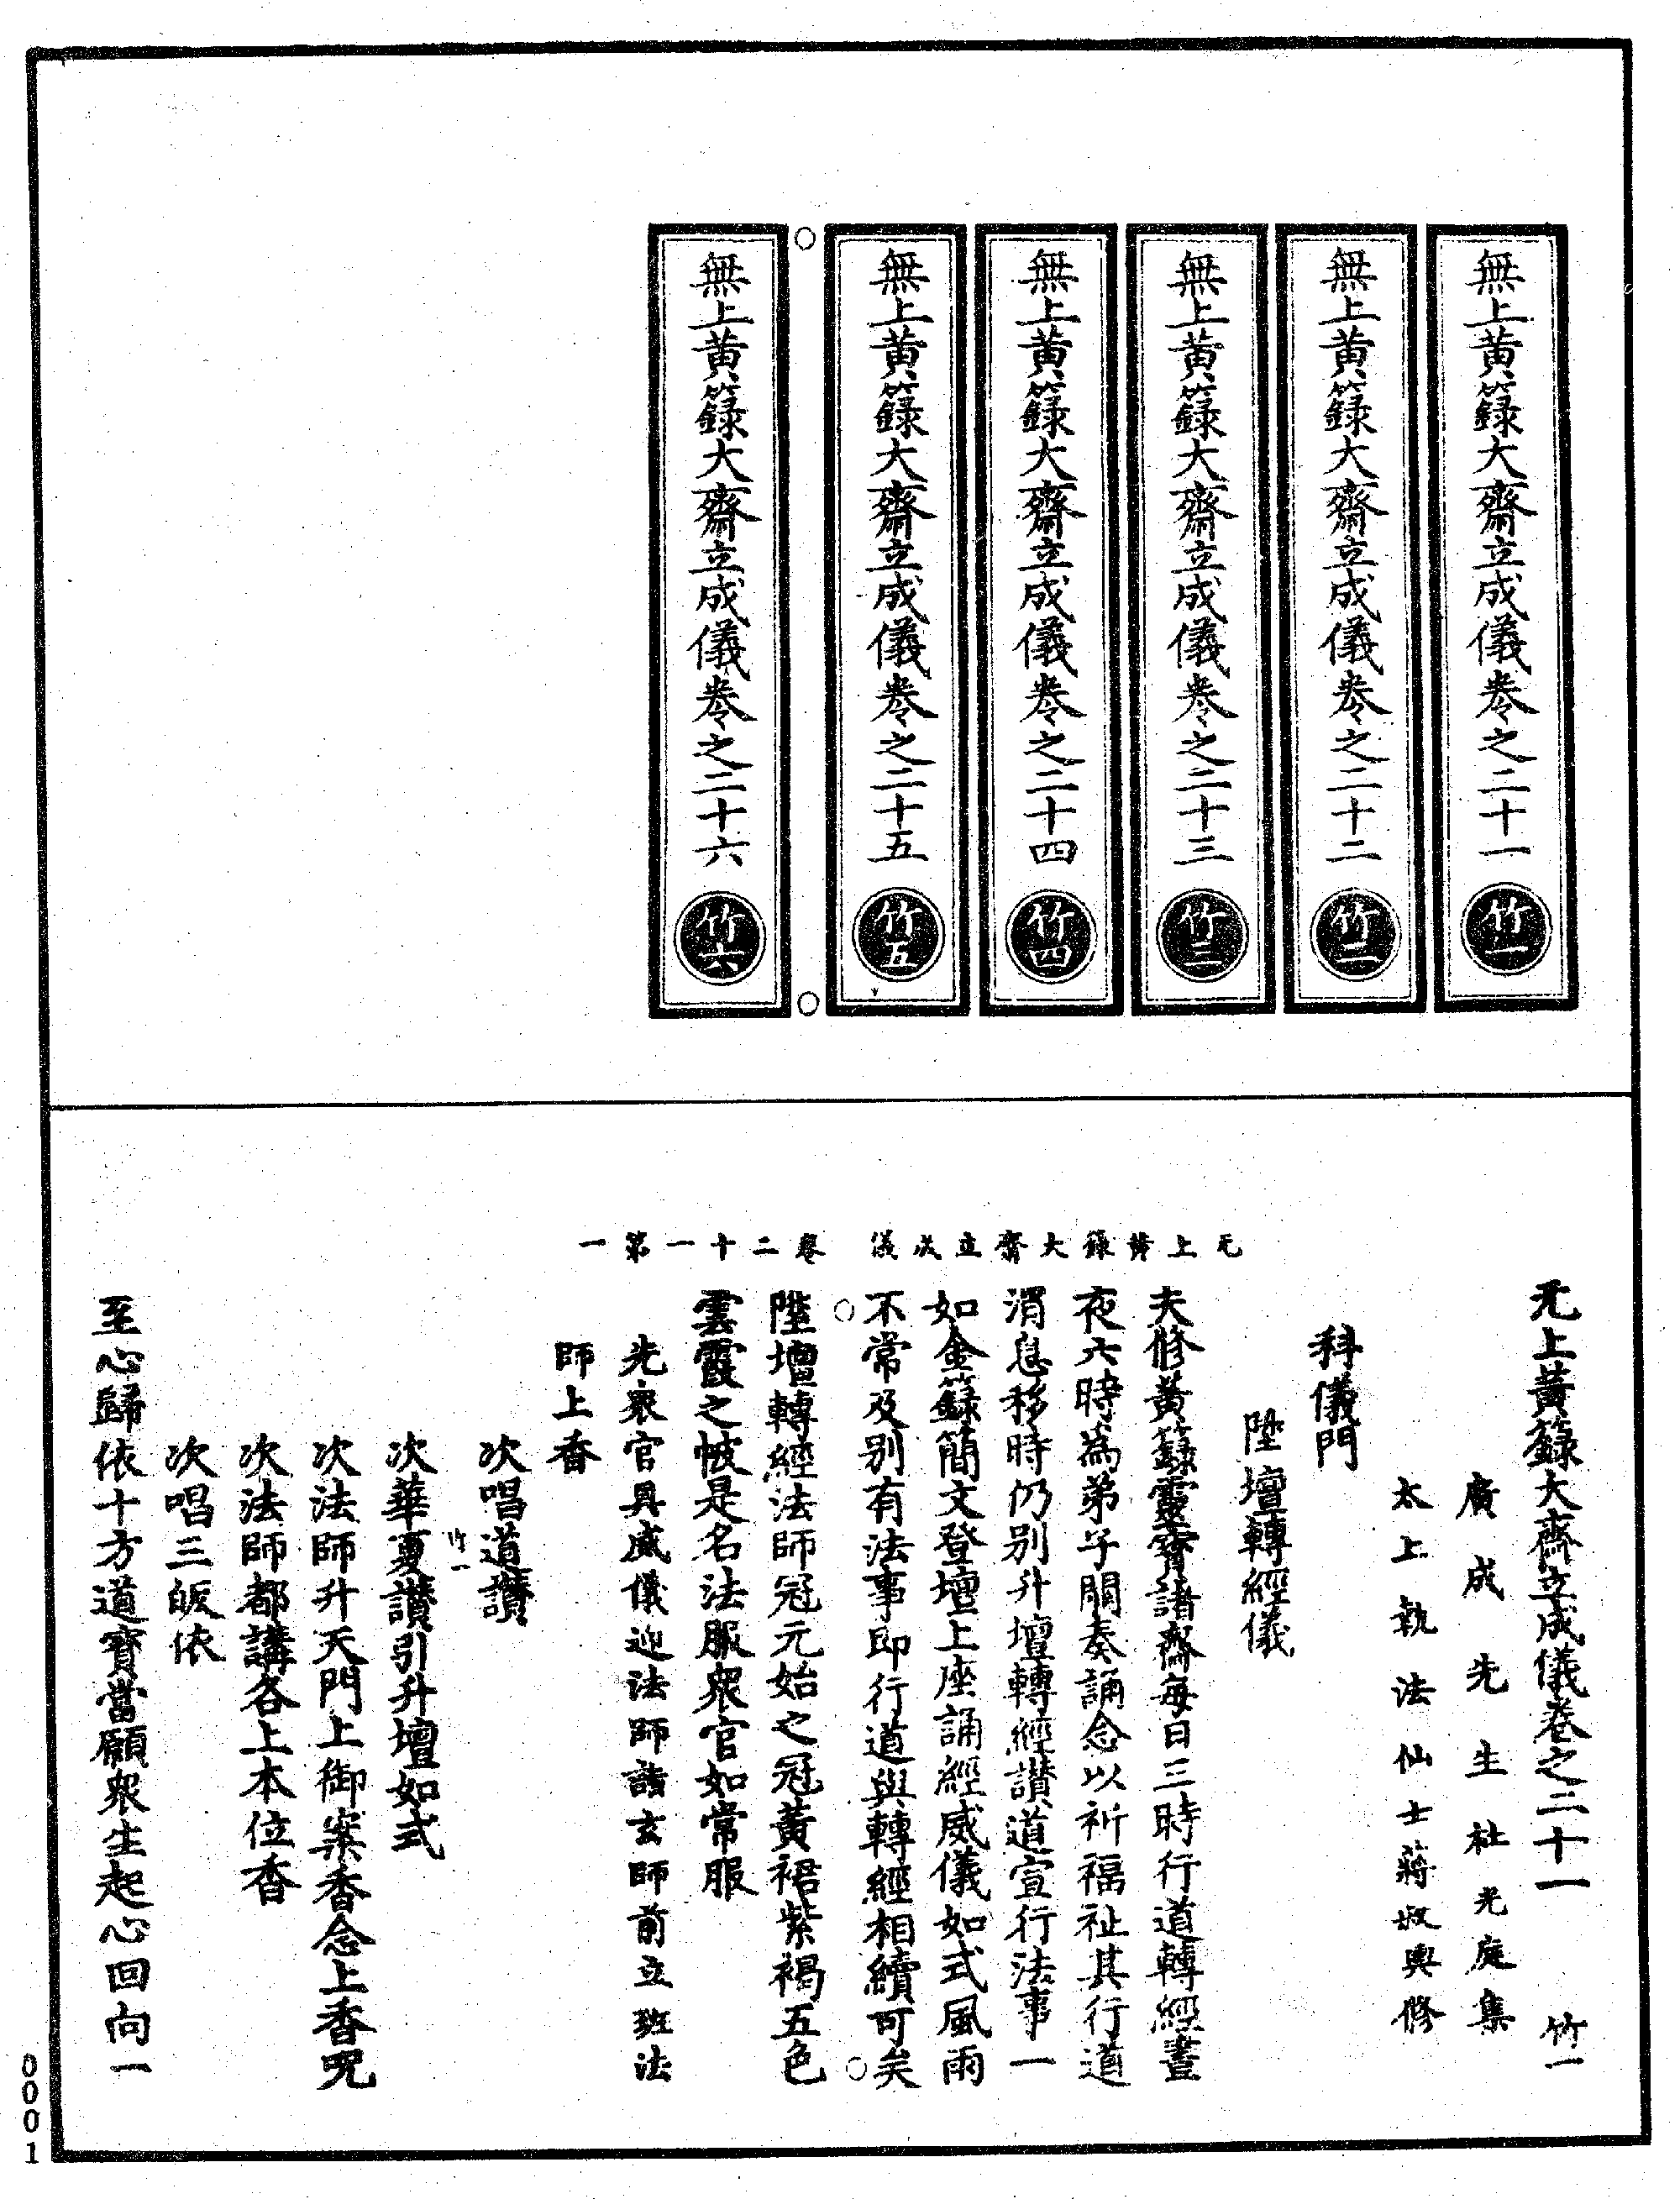 無上黃籙大齋立成儀卷之二十一
竹一
無上黃籙大齋立成儀卷之二十二
竹二
無上黃籙大齋立成儀卷之二十三
竹三
無上黃籙大齋立成儀卷之二十四
竹四
無上黃籙大齋立成儀卷之二十五
竹五
無上黃籙大齋立成儀卷之二十六
竹六
无上黃籙大齋立成儀 卷二十一第一
无上黃籙大齋立成儀卷之二十一 竹一
廣成先生杜光庭集
太上執法仙士蔣叔輿修
科儀門
陞壇轉經儀
夫修黃籙靈齋諸齋每日三時行道轉經晝
夜六時為弟子關奏誦念以祈福祉其行道
消息移時仍別升壇轉經讚道宣行法事一
如金籙簡文登壇上座誦經威儀如式風雨
不常及別有法事即行道與轉經相續可矣
陞壇轉經法師冠元始之冠黃裙紫褐五色
雲霞之帔是名法服眾官如常服
先眾官具威儀迎法師詣玄師前立班法
師上香
次唱道讚
竹一
次華夏讚引升壇如式
次法師升天門上御案香念上香呪
次法師都講各上本位香
次唱三皈依
至心歸依十方道寶當願眾生起心回向一
0001